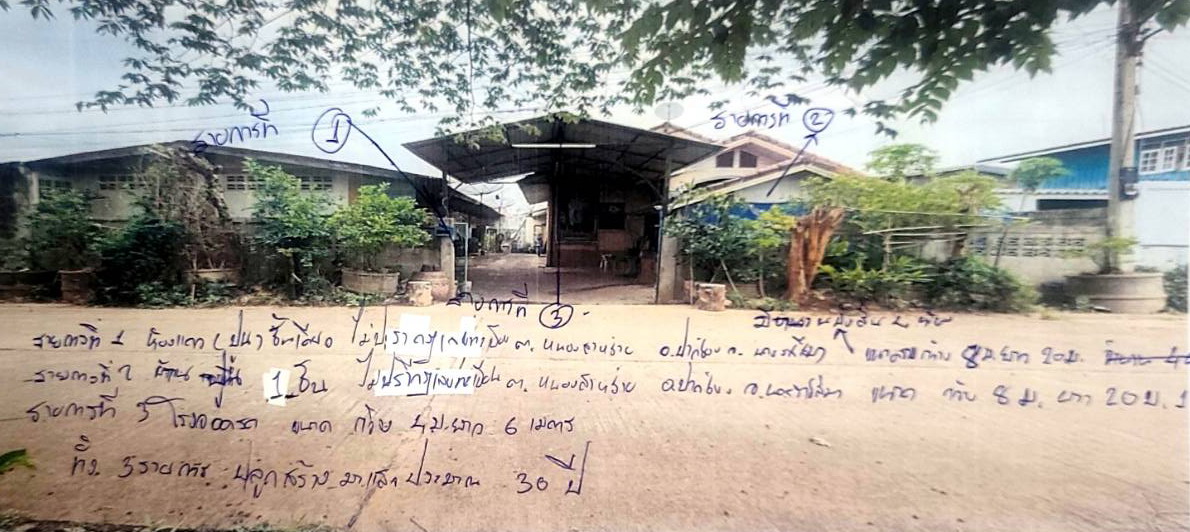 รายการที่ ①
รายการที่ ②
รายการที่ ③
รายการที่ 1 ห้องแถว (ปูน) ชั้นเดียว ไม่ปรากฏเลขทะเบียน ต. หนองสาหร่าย อ.ปากช่อง จ. นครราชสีมา ขนาด กว้าง 8 ม. ยาว 20 ม.
รายการที่ 2 บ้าน 1 ชั้น ไม่ปรากฏเลขทะเบียน ต. หนองสาหร่าย อ.ปากช่อง จ.นครราชสีมา ขนาด กว้าง 8 ม. ยาว 20 ม.
รายการที่ 3 โรงจอดรถ ขนาด กว้าง 4 ม. ยาว 6 เมตร
ทั้ง 3 รายการ ปลูกสร้างมาแล้วประมาณ 30 ปี